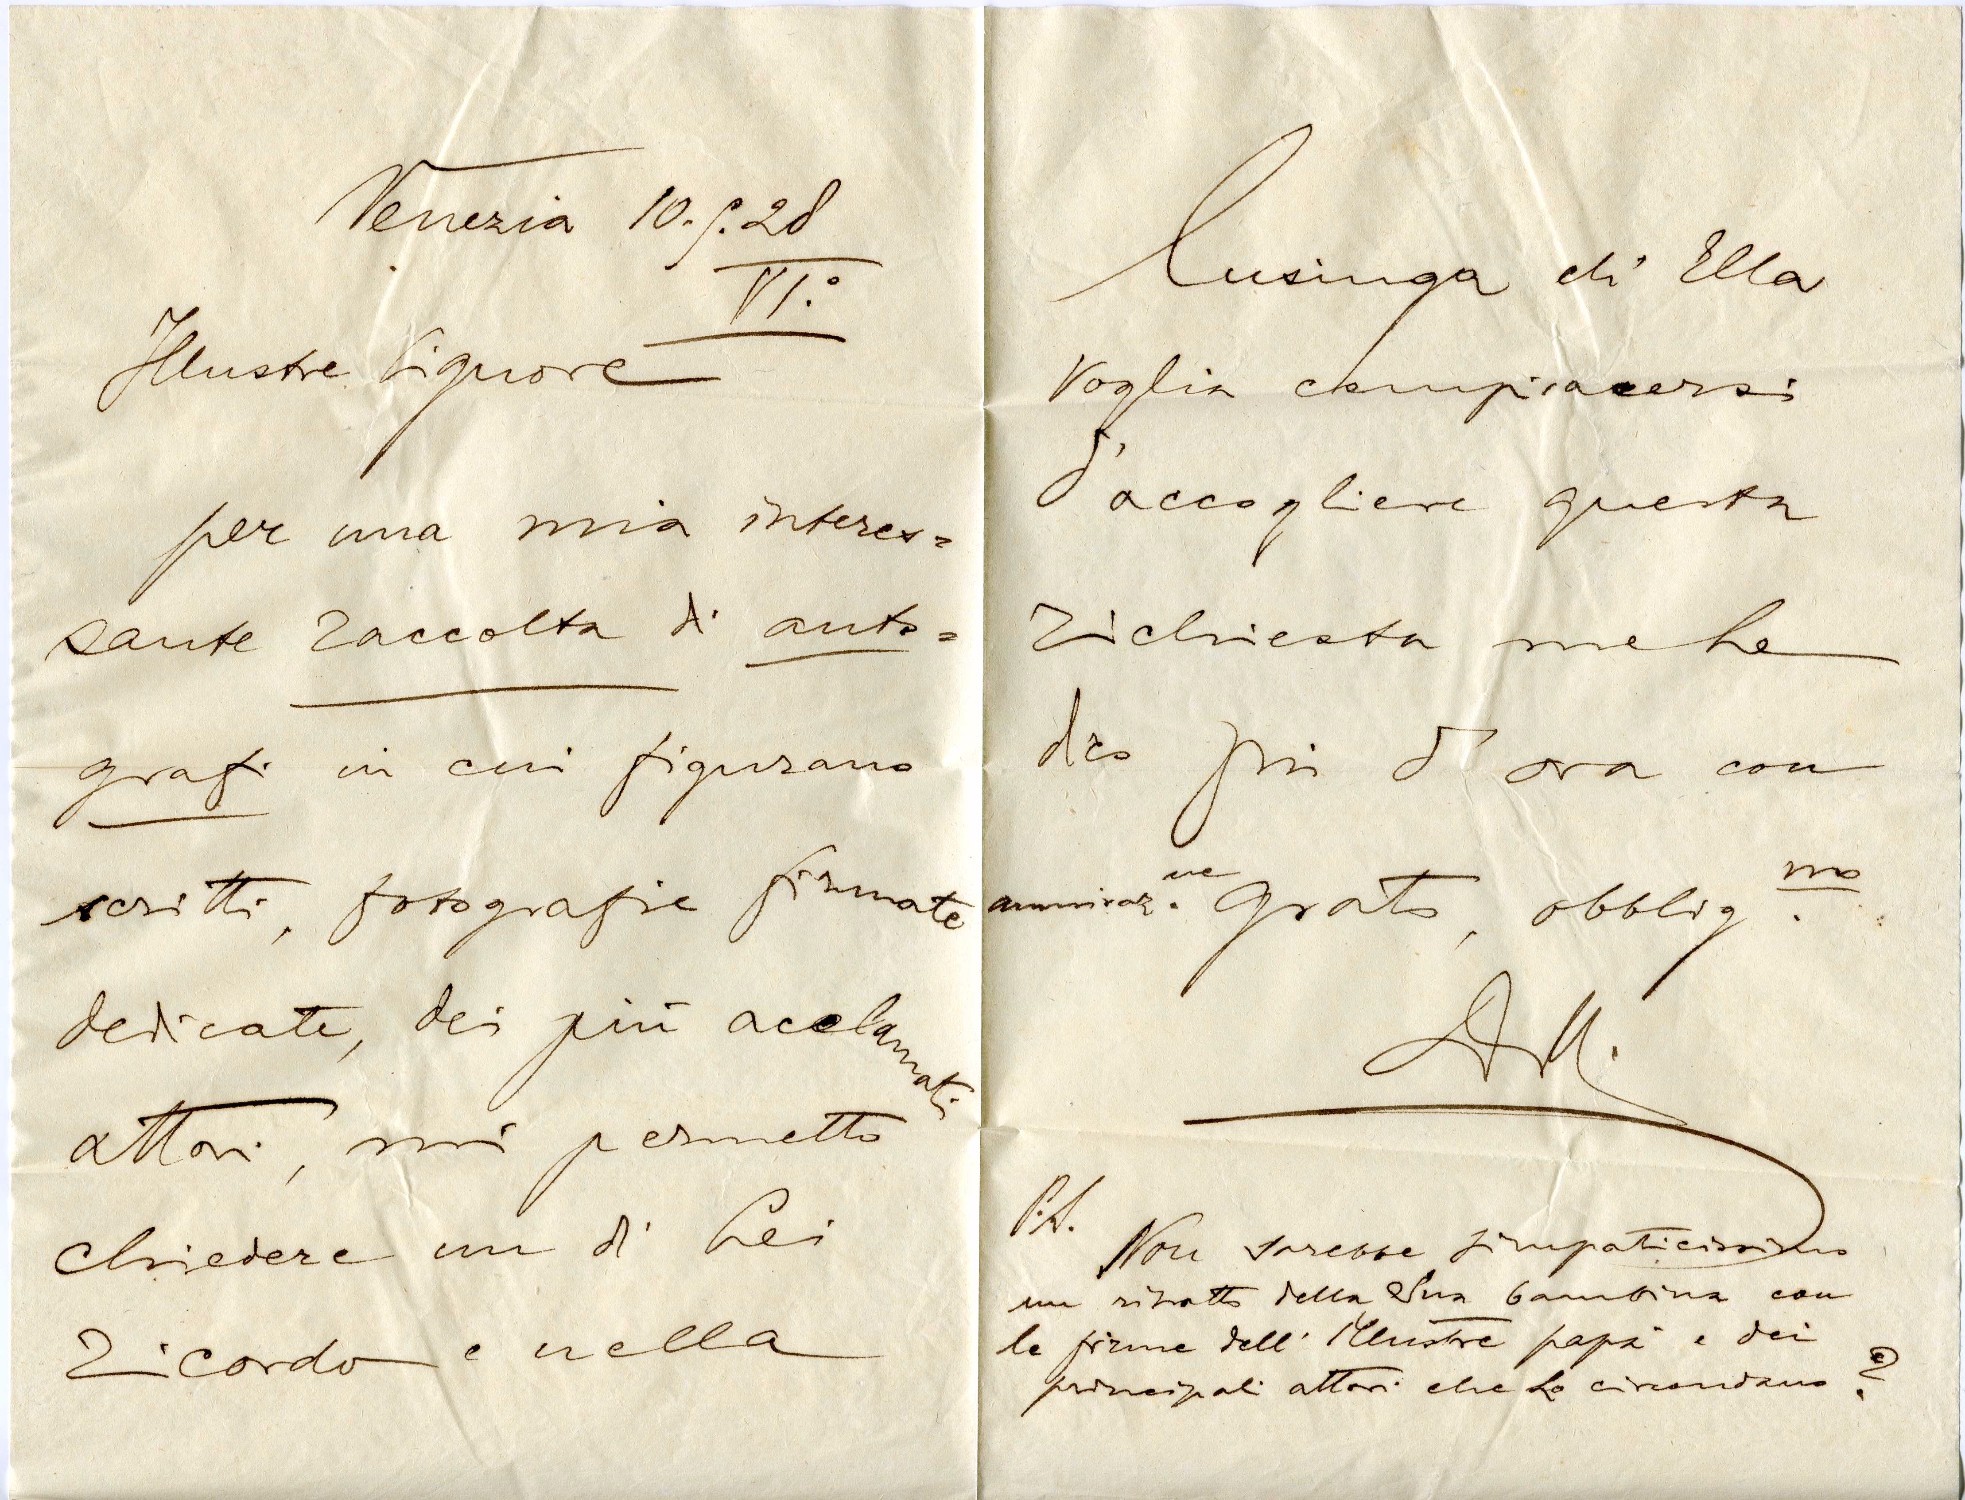 Venezia 10.9.28
VI.°
Illustre Signore
per una mia interes=
sante raccolta di auto=
grafi in cui figurano
scritti, fotografie firmate
dedicate, dei più acclamati
attori, mi permetto
chiedere un di Lei
ricordo e nella
lusinga di Ella
voglia compiacersi
d'accogliere questa
richiesta me Le
dico fin d'ora con
ammiraz.ne grato, obblig.mo
P.S.
Non sarebbe simpaticissimo
un ritratto della Sua bambina con
le firme dell'Illustre papà e dei
principali attori che Lo circondano?